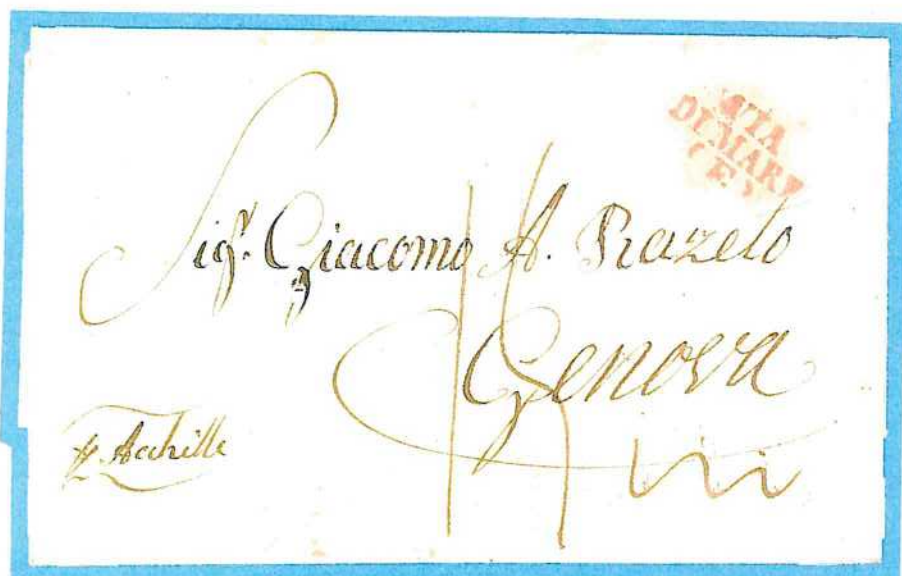 VIA
DI MARE
(E.)
Sigr. Giacomo A. Razeto
Genova
p. Achille